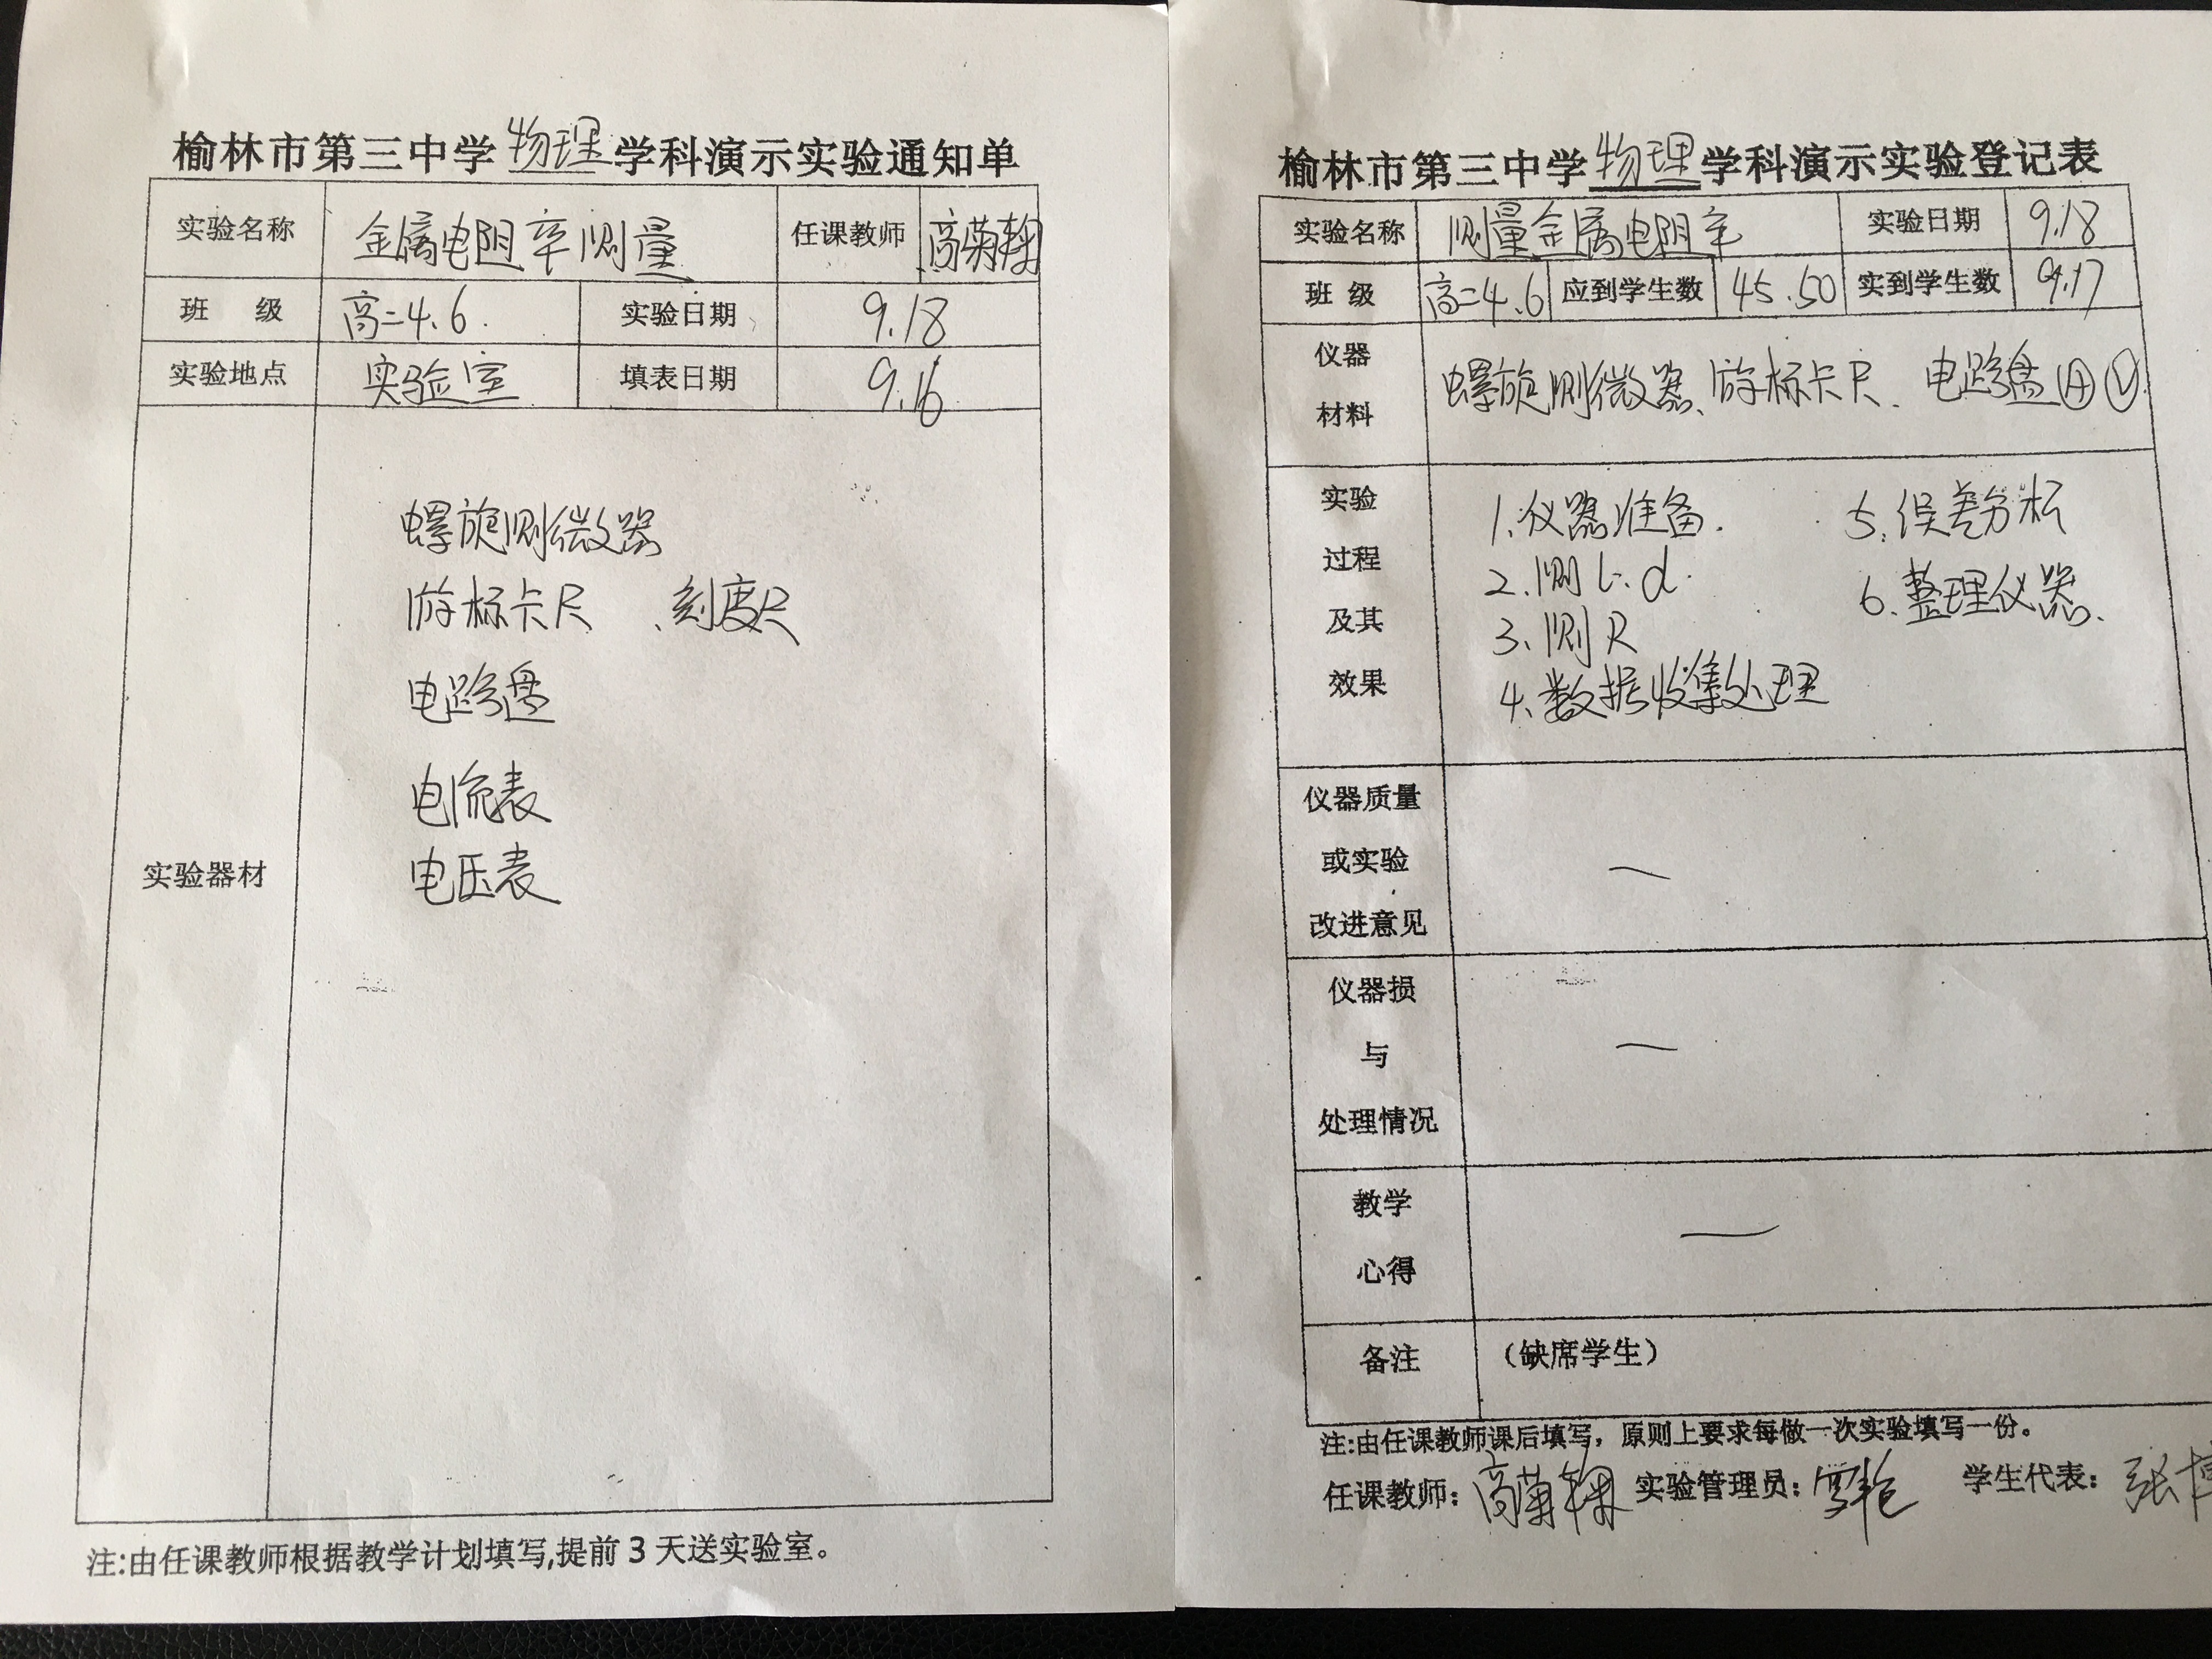 榆林市第三中学物理学科演示实验通知单
实验名称 金属电阻率测量 任课教师 高菊翱
班 级 高二4.6. 实验日期 9.18
实验地点 实验室 填表日期 9.16
螺旋测微器
游标卡尺 、刻度尺
电路盘
电流表
电压表
实验器材
注:由任课教师根据教学计划填写,提前3天送实验室。
榆林市第三中学物理学科演示实验登记表
实验名称 测量金属电阻率 实验日期 9.18
班 级 高二4.6 应到学生数 45.50 实到学生数
仪器
材料
螺旋测微器、游标卡尺、电路盘ⒶⓋ.
实验
过程
及其
效果
1.仪器准备.
2.测L.d.
3.测R
4.数据收集处理
5.误差分析
6.整理仪器.
仪器质量
或实验
改进意见
—
仪器损
与
处理情况
—
教学
心得
—
备注 (缺席学生)
注:由任课教师课后填写，原则上要求每做一次实验填写一份。
任课教师: 高菊翱 实验管理员: 学生代表: 张